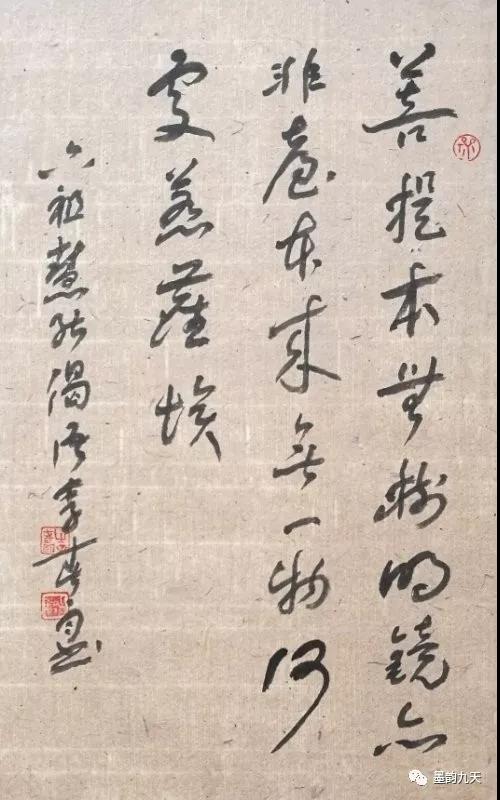 菩提本無樹明鏡亦
非臺本來無一物何
處惹塵埃
六祖慧能偈语李
墨韵九天